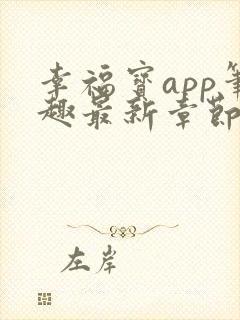 幸福宝app笔
趣最新章节
左岸